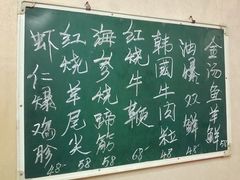 金汤鱼羊鲜
油爆双脆 48-
韩国牛肉粒 48-
红烧牛鞭 68-
海参烧蹄筋 58
红烧羊尾 58
虾仁爆鸡胗 48-